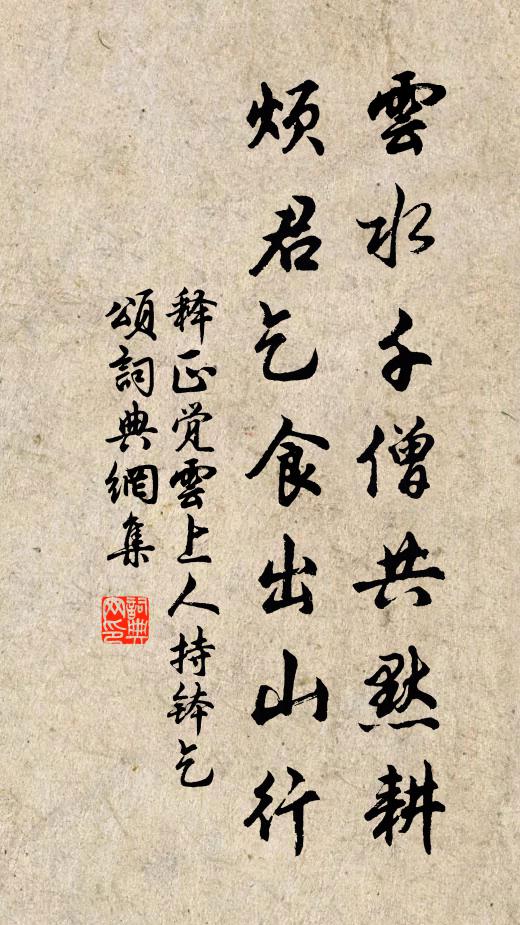 雲水千僧共默耕
煩君乞食出山行
释正觉雲上人持鉢乞
頌詞典網集
詞典
网印